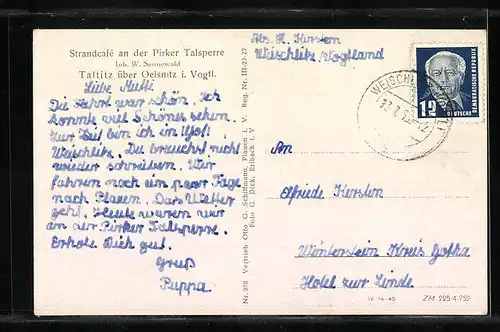 Strandcafé an der Pirker Talsperre
Inh. W. Sennewald
Taltitz über Oelsnitz i. Vogtl.
Liebe Mutti
Die Fahrt war schön. Ich
konnte viel Schönes sehen.
Zur Zeit bin ich in
Weischlitz. Du brauchst nicht
wieder schreiben. Wir
fahren noch ein paar Tage
nach Plauen. Das Wetter
geht. Heute waren wir
an der Pirker Talsperre.
Erhole Dich gut.
Gruß
Puppa
Nr. 378 Vertrieb Otto G. Schiffmann, Plauen i. V. Reg. Nr. III-23-27
Foto G. Dick, Erlbach i. V.
Abs. R. Kersten
Weischlitz/Vogtland
WEISCHL
12
DEUTSCHE
DEMOKRATISCHE REPUBLIK
An
Elfriede Kersten
Winterstein Kreis Gotha
Hotel zur Linde
IV-14-45
ZM 225 4 752